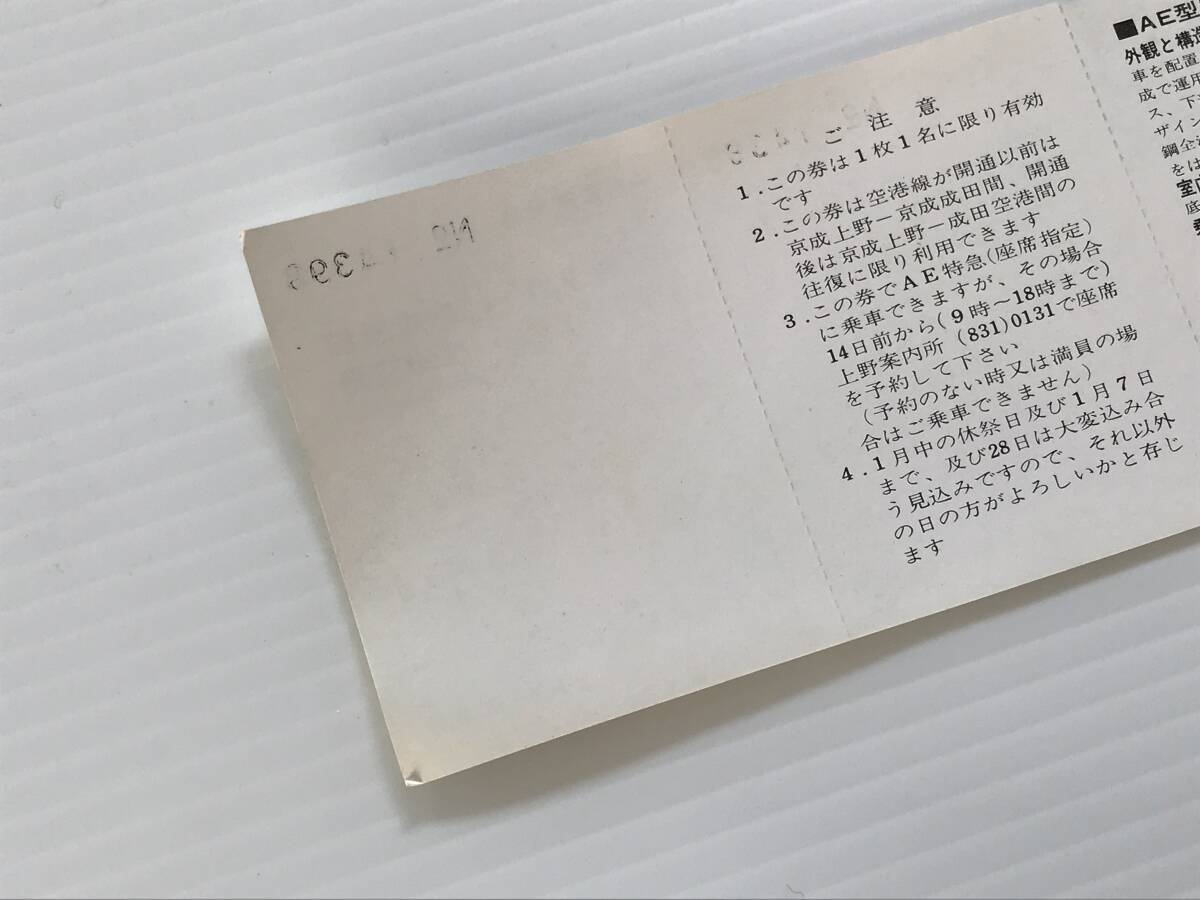 ご注意
1.この券は1枚1名に限り有効
です
2.この券は空港線が開通以前は
京成上野ー京成成田間、開通
後は京成上野ー成田空港間の
往復に限り利用できます
3.この券でAE特急(座席指定)
に乗車できますが、その場合
14日前から(9時〜18時まで)
上野案内所(831)0131で座席
を予約して下さい
(予約のない時又は満員の場
合はご乗車できません)
4.1月中の休祭日及び1月7日
まで、及び28日は大変込み合
う見込みですので、それ以外
の日の方がよろしいかと存じ
ます
■AE型
外観と構造
車を配置
成で運用
ス、下
ザイン
鋼全
をは
室内
底